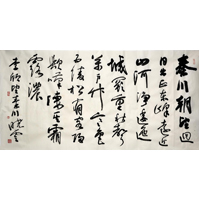 秦川朝望迥
日出正東峰遠近
山河淨逶迤
城闕重秋聲
萬戶竹寒色
五陵松客有歸
歟嘆凄其霜
露濃
李頎望秦川